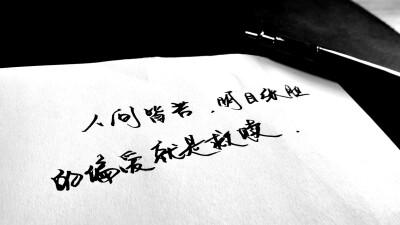 人间皆苦，明目张胆
的偏爱就是救赎.